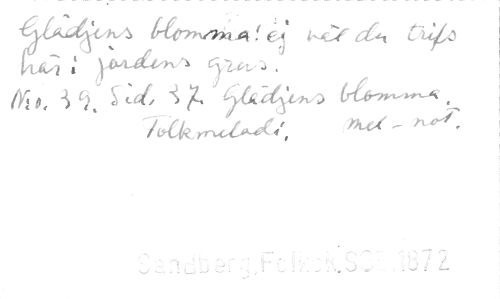 Glädjens blomma! ej väl du trifs
här i jordens grus.
No. 39. Sid. 37. Glädjens blomma.
Folkmelodi. mel-not.
Sandberg, Folksk. 1872